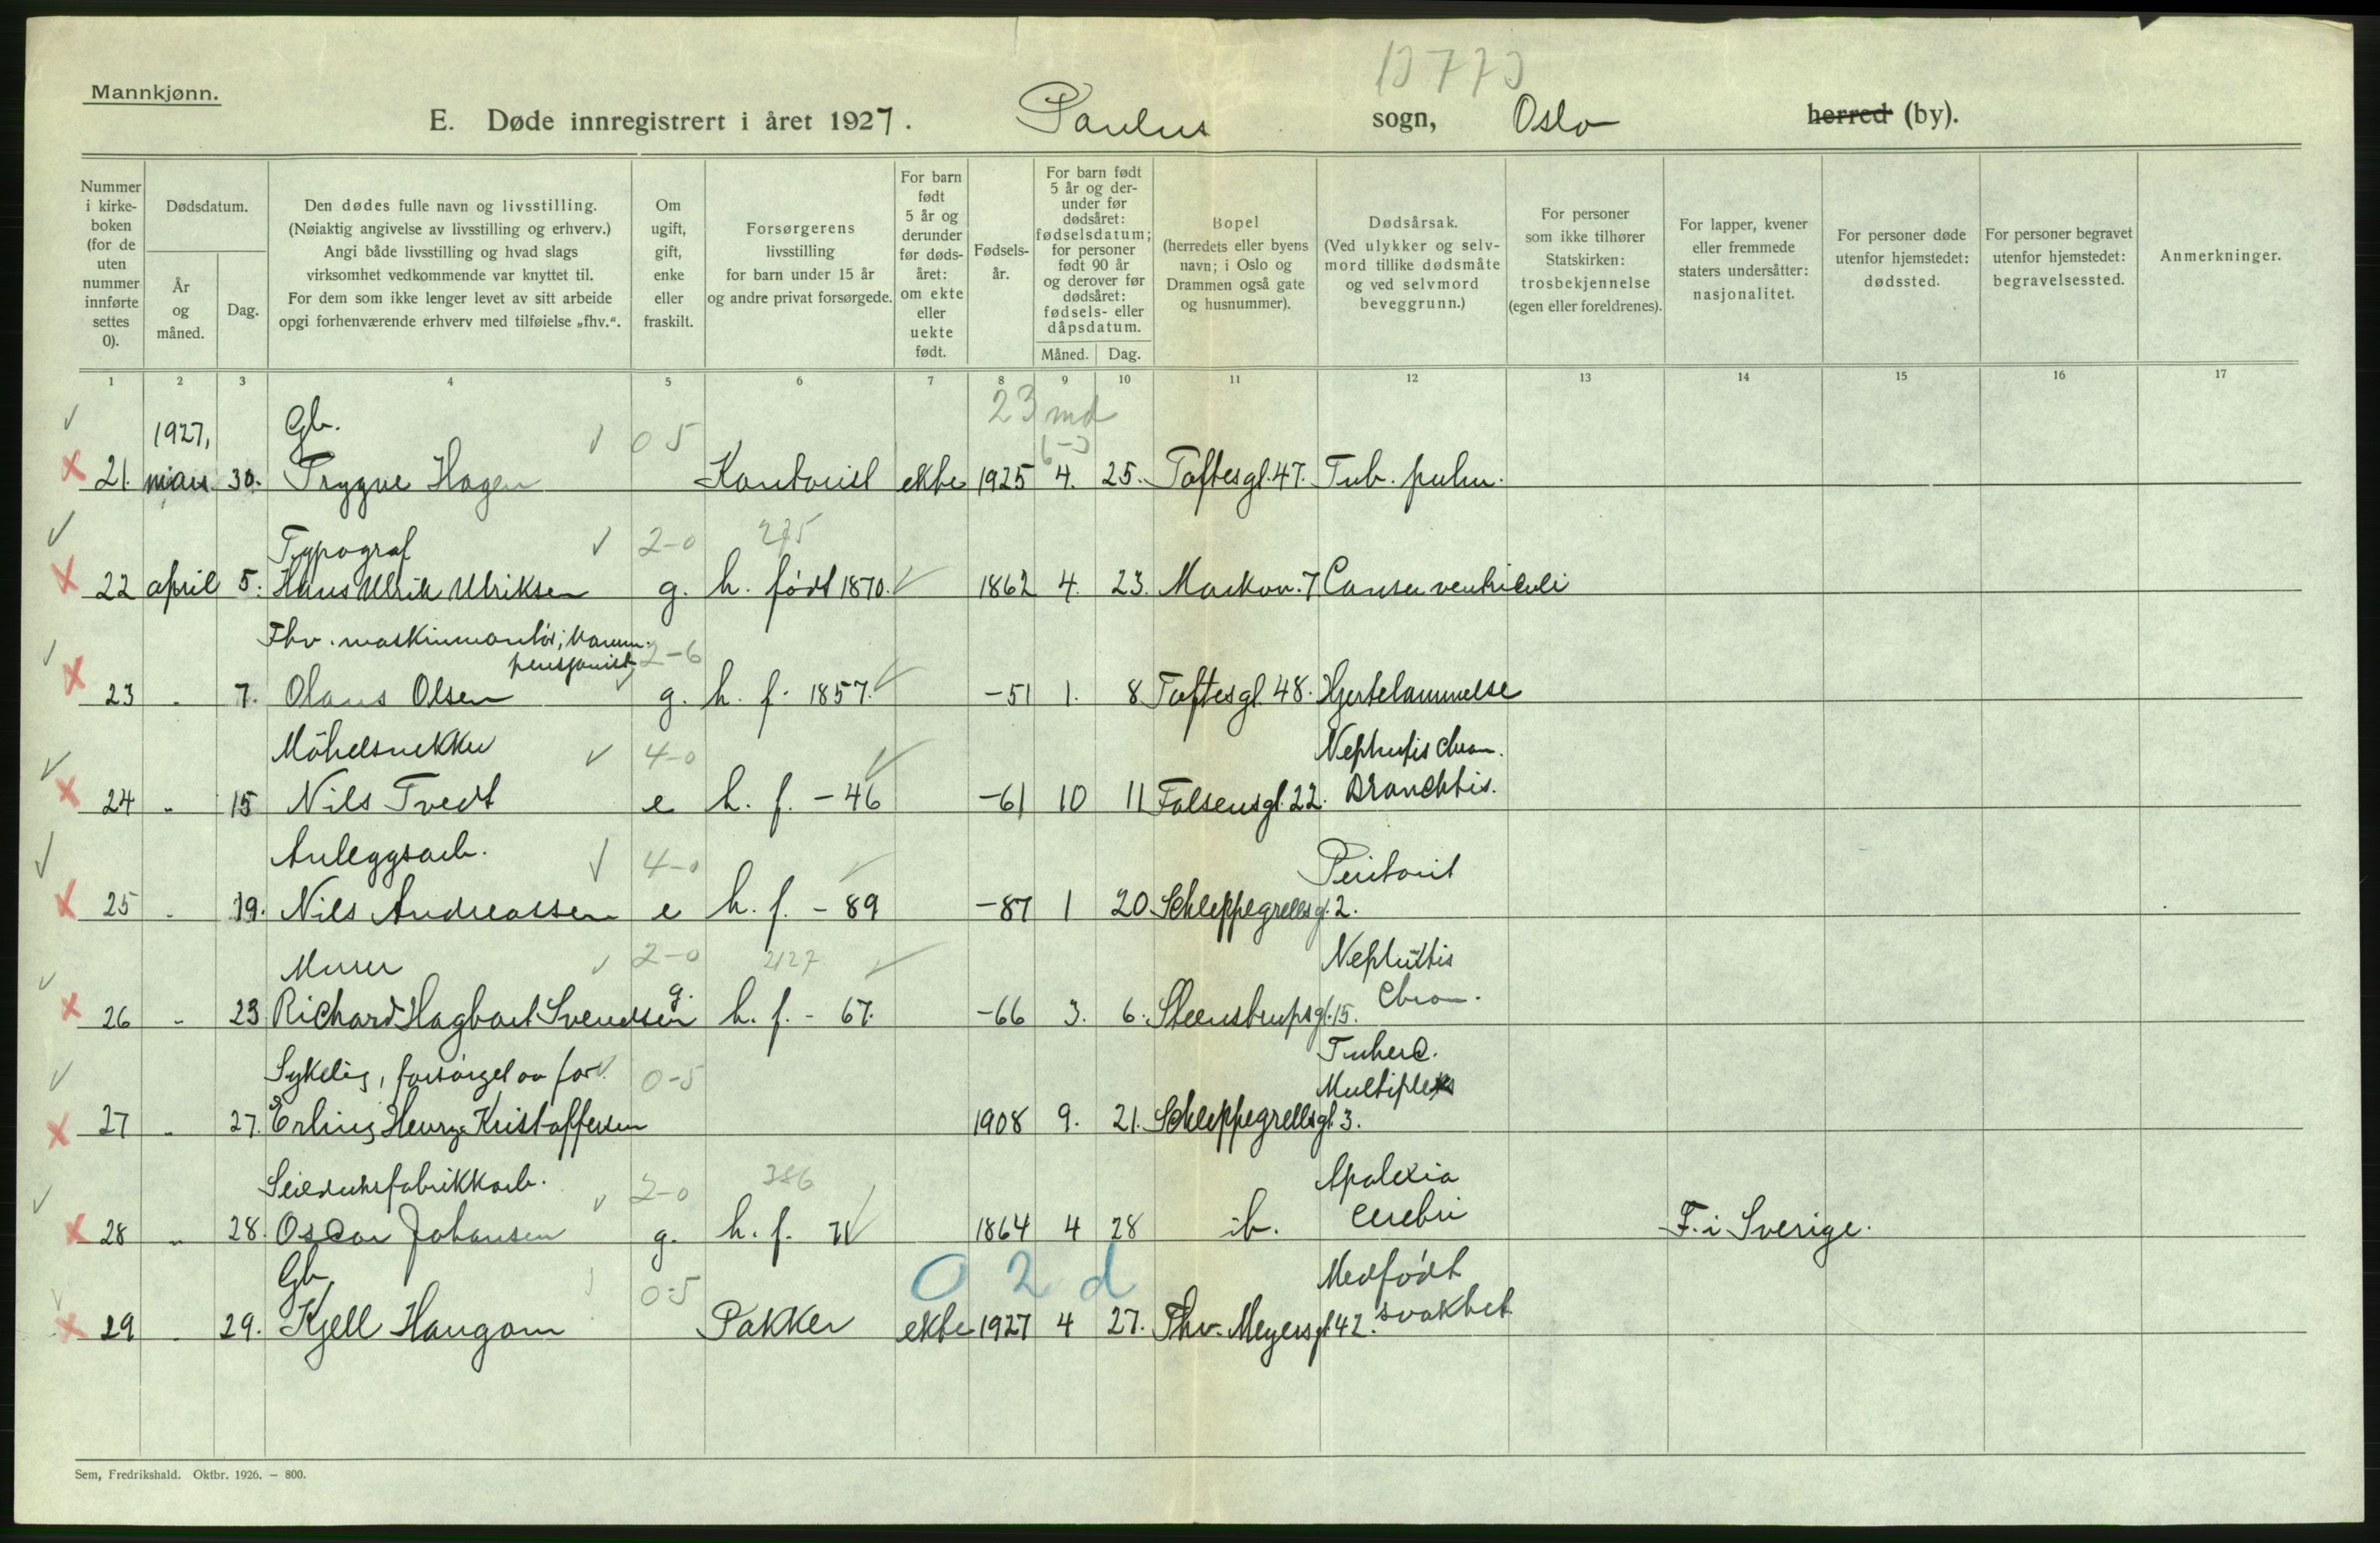 Mannkjønn.
13773
E. Døde innregistrert i året 1927. Paulus sogn, Oslo herred (by).
Nummer i kirke-boken (for de uten nummer innførte settes 0).
Dødsdatum.
År og måned.
Dag.
Den dødes fulle navn og livsstilling.
(Nøiaktig angivelse av livsstilling og erhverv.)
Angi både livsstilling og hvad slags
virksomhet vedkommende var knyttet til.
For dem som ikke lenger levet av sitt arbeide
opgi forhenværende erhverv med tilføielse „fhv.“.
Om ugift, gift, enke eller fraskilt.
Forsørgerens livsstilling for barn under 15 år og andre privat forsørgede.
For barn født 5 år og derunder før døds-året: om ekte eller uekte født.
Fødsels-år.
For barn født 5 år og der-under før dødsåret: fødselsdatum; for personer født 90 år og derover før dødsåret: fødsels- eller dåpsdatum.
Måned. Dag.
Bopel (herredets eller byens navn; i Oslo og Drammen også gate og husnummer).
Dødsårsak. (Ved ulykker og selv-mord tillike dødsmåte og ved selvmord beveggrunn.)
For personer som ikke tilhører Statskirken: trosbekjennelse (egen eller foreldrenes).
For lapper, kvener eller fremmede staters undersåtter: nasjonalitet.
For personer døde utenfor hjemstedet: dødssted.
For personer begravet utenfor hjemstedet: begravelsessted.
Anmerkninger.
1 2 3 4 5 6 7 8 9 10 11 12 13 14 15 16 17
23 md
1927, Gb. 05
21. mars 30. Trygve Hagen Kontorist ekte 1925 4. 25. Toftesgt. 47. Tub. pulm.
Typograf 2-0 275
22 april 5. Hans Ulrik Ulriksen g. h. født 1870. 1862 4. 23. Markv. 7 Cancer ventriculi
Fhv. maskinmontør, komm. pensjonist 2-6
23 - 7. Olaus Olsen g. h. f. 1857. -51 1. 8 Toftesgt. 48. Hjertelammelse
Möbelsnekker 4-0 Nephritis chron.
24 - 15 Nils Tvedt e h. f. - 46 -61 10 11 Falsensgt. 22. Bronchtis.
Anleggsarb. 4-0 Peritonit
25 - 19. Nils Andreassen e h. f. - 89 -87 1 20. Schleppegrellsgt. 2.
Murer 2-0 2127 Nephrittis
26 - 23 Richard Hagbart Svendsen g. h. f. - 67. -66 3. 6. Steenstrupsgt. 15. Chron.
Sykelig, forsørget av for. 0-5 Tuberc. Multiplex
27 - 27. Erling Henry Kristoffersen 1908 9. 21. Schleppegrellsgt. 3.
Seilduksfabrikkarb. 2-0 386 Apolexia
28 - 28. Oscar Johansen g. h. f. 71 1864 4 28 ib. cerebri F. i Sverige.
Gb. 0-5 0 2 d Medfødt
29 - 29. Kjell Haugom Pakker ekte 1927 4 27. Thv. Meyersgt. 42. svakhet
Sem, Fredrikshald. Oktbr. 1926. — 800.